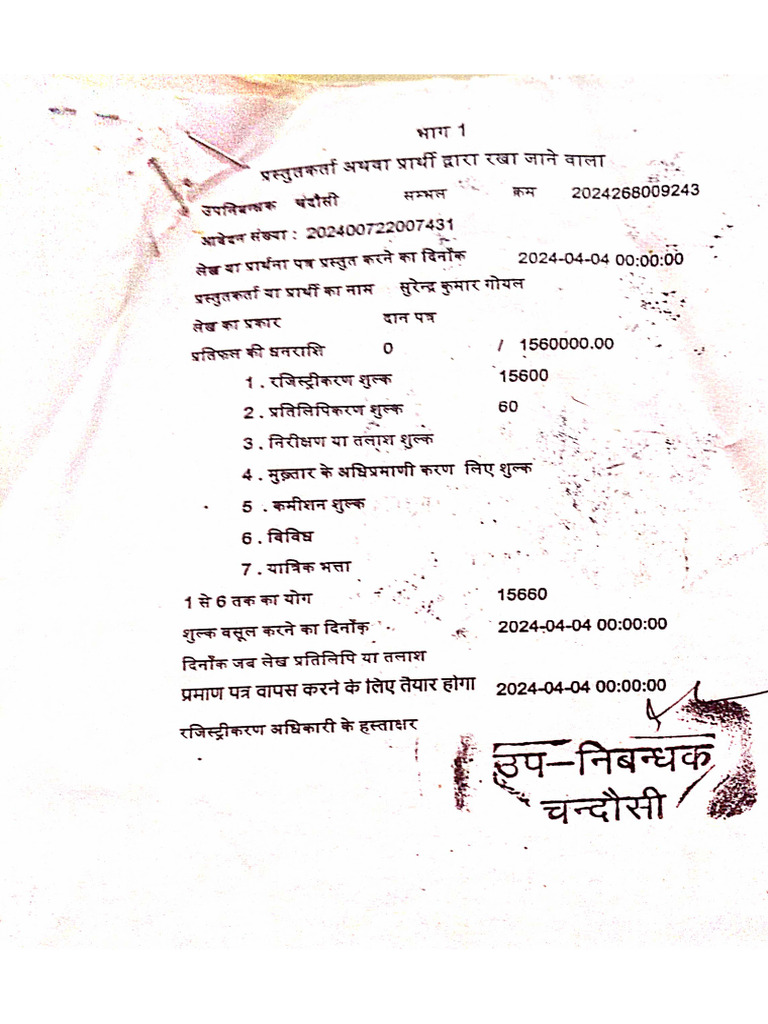 भाग 1
प्रस्तुतकर्ता अथवा प्रार्थी द्वारा रखा जाने वाला
उपनिबन्धक चंदौसी सम्भल क्रम 2024268009243
आवेदन संख्या : 202400722007431
लेख या प्रार्थना पत्र प्रस्तुत करने का दिनाँक 2024-04-04 00:00:00
प्रस्तुतकर्ता या प्रार्थी का नाम सुरेन्द्र कुमार गोयल
लेख का प्रकार दान पत्र
प्रतिफल की धनराशि 0 / 1560000.00
1 . रजिस्ट्रीकरण शुल्क 15600
2 . प्रतिलिपिकरण शुल्क 60
3 . निरीक्षण या तलाश शुल्क
4 . मुख़्तार के अधिप्रमाणी करण लिए शुल्क
5 . कमीशन शुल्क
6 . विविध
7 . यात्रिक भत्ता
1 से 6 तक का योग 15660
शुल्क वसूल करने का दिनाँक 2024-04-04 00:00:00
दिनाँक जब लेख प्रतिलिपि या तलाश
प्रमाण पत्र वापस करने के लिए तैयार होगा 2024-04-04 00:00:00
रजिस्ट्रीकरण अधिकारी के हस्ताक्षर
उप-निबन्धक
चन्दौसी